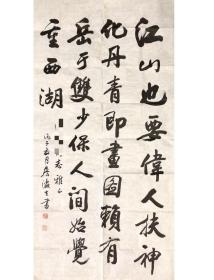 江山也要偉人扶神
化丹青即畫圖賴有
岳于雙少保人間始覺
重西湖
志雅
丙子月書